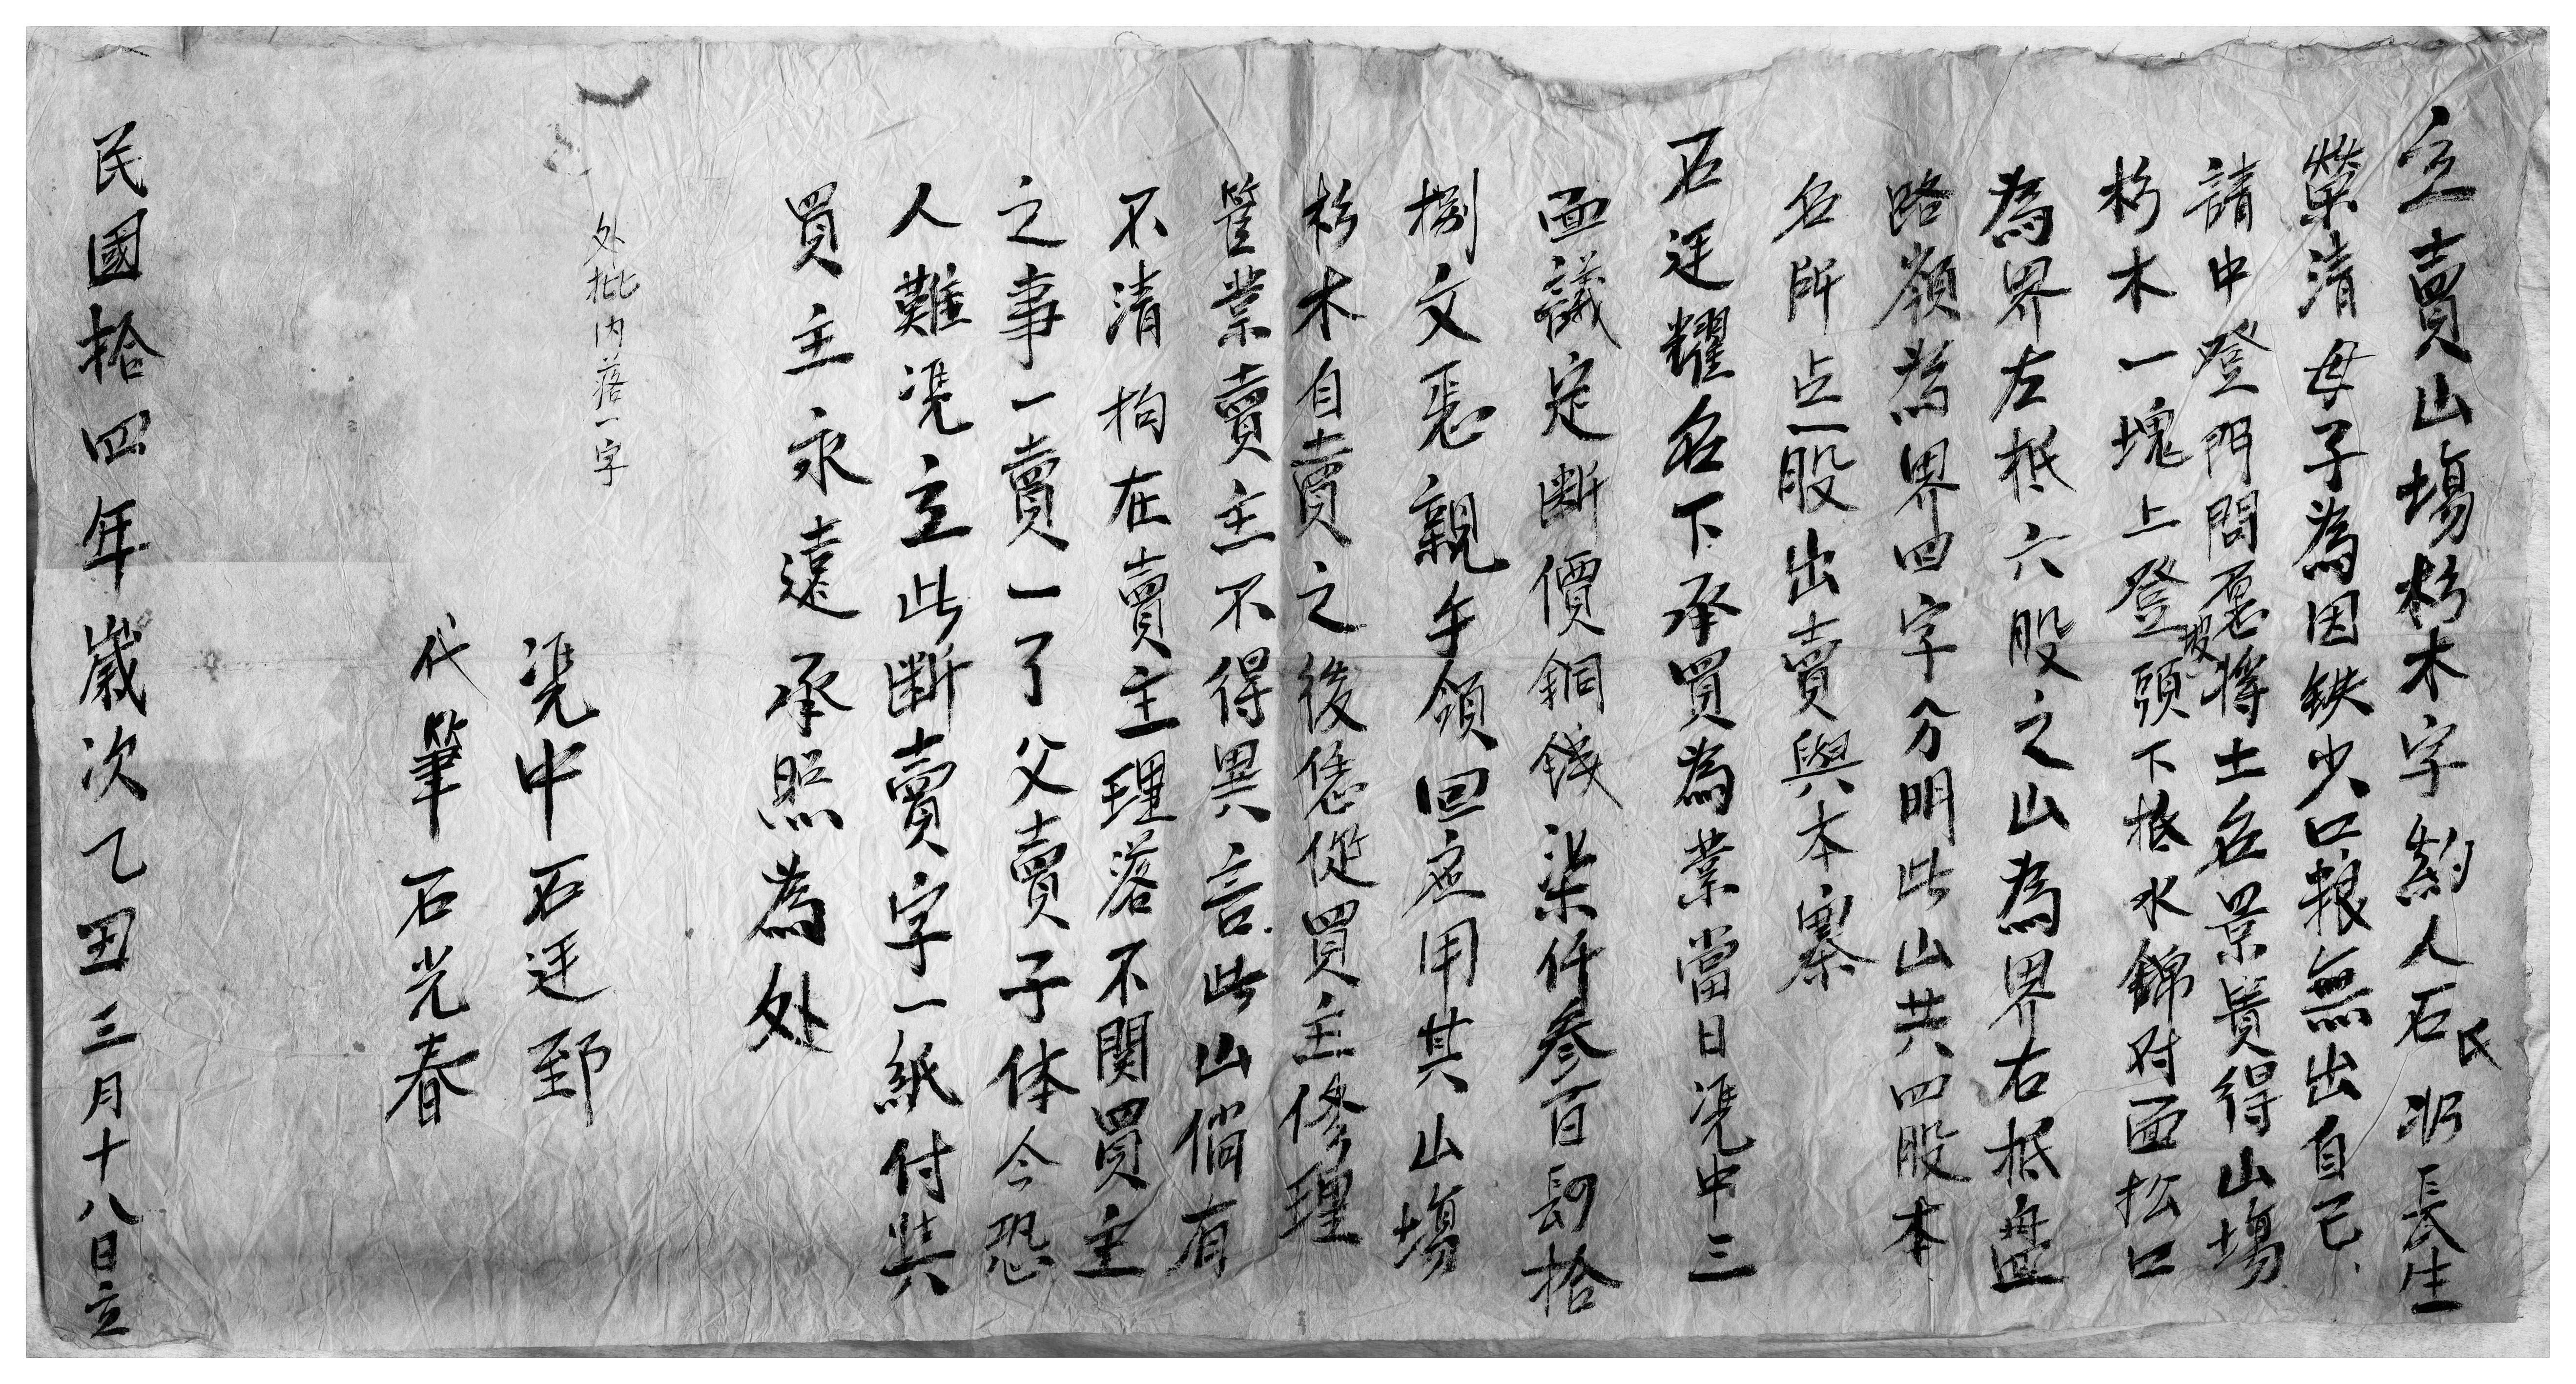 立賣山場杉木字約人石氏沠長生
榮清母子為因缺少口粮無出自己
請中登門問恳將土名景贵得山場
杉木一塊上登坡頭下抵水錦对面松口
為界左抵六股之山為界右抵盘
路嶺為界四字分明此山共四股本
名所占一股出賣與本寨
石廷耀名下承買為業當日凴中三
面議定断價銅錢柒仟叁百捌拾
捌文整親手領回应用其山場
杉木自賣之後恁從買主修理
管業賣主不得異言此山倘有
不清拘在賣主理落不関買主
之事一賣一了父賣子休今恐
人難凴立此断賣字一紙付與
買主永遠承照為处
处批内落一字
凴中石廷郅
代筆石光春
民國拾四年歲次乙丑三月十八日立